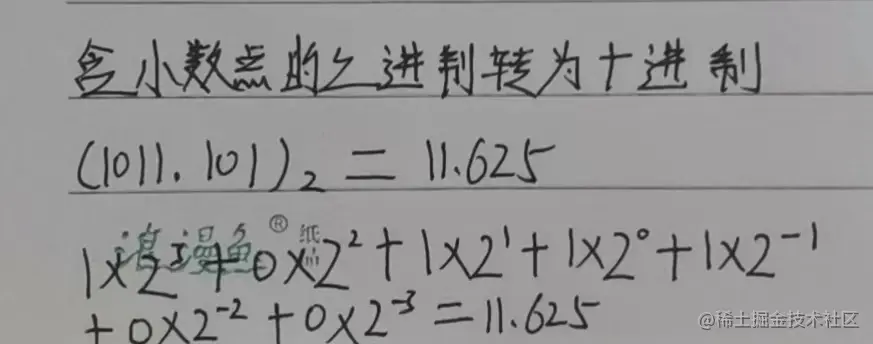 含小数点的二进制转为十进制
(1011.101)₂ = 11.625
浪漫鱼® 纸
1×2³+0×2²+1×2¹+1×2⁰+1×2⁻¹
+0×2⁻²+0×2⁻³=11.625
@稀土掘金技术社区